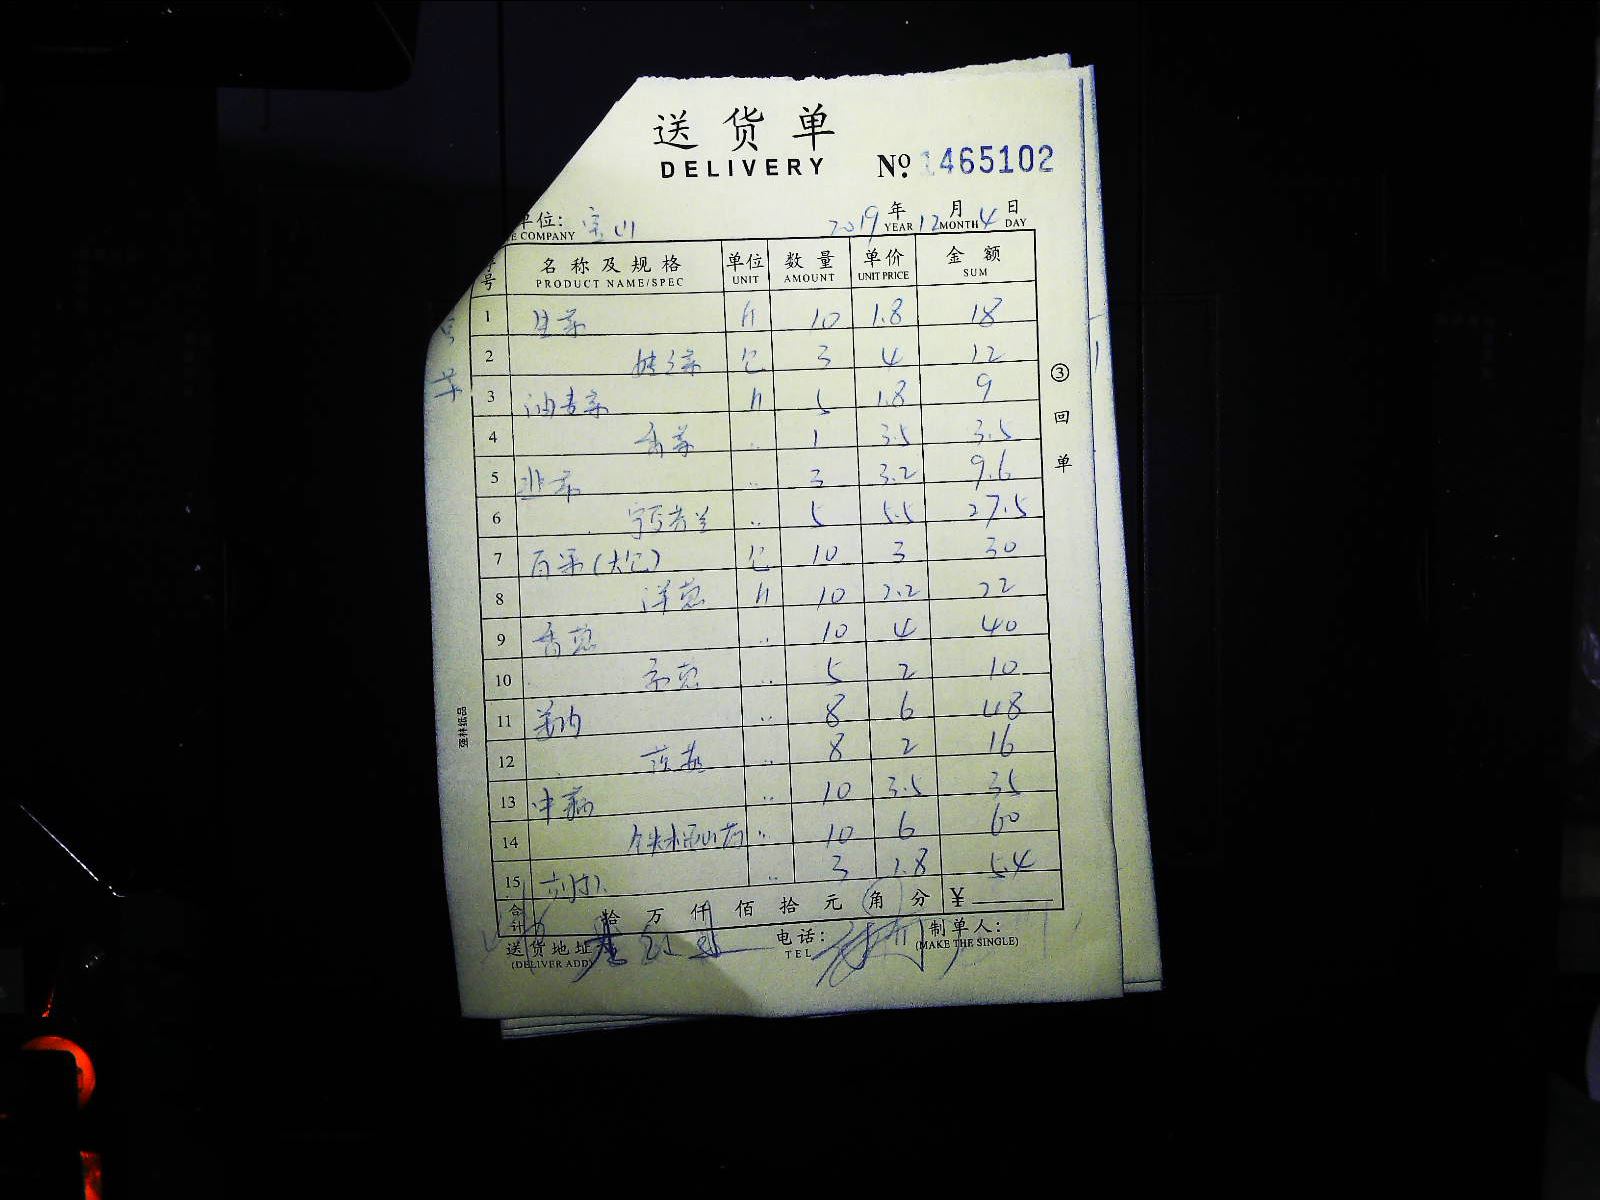 送货单
DELIVERY No. 1465102
单位: 宝山 2019年12月4日
E COMPANY YEAR MONTH DAY
号 名称及规格 单位 数量 单价 金额
PRODUCT NAME/SPEC UNIT AMOUNT UNIT PRICE SUM
1 生菜 斤 10 1.8 18
2 娃娃菜 包 3 4 12
3 油麦菜 斤 5 1.8 9
4 香菜 .. 1 3.5 3.5
5 韭菜 .. 3 3.2 9.6
6 .. 5 5.5 27.5
7 (大包) 包 10 3 30
8 洋葱 斤 10 2.2 22
9 香葱 .. 10 4 40
10 京葱 .. 5 2 10
11 .. 8 6 48
12 .. 8 2 16
13 .. 10 3.5 35
14 铁棍山药 .. 10 6 60
15 .. 3 1.8 5.4
合计 拾 万 仟 佰 拾 元 角 分 ¥
送货地址 电话: 制单人:
(DELIVER ADD) TEL (MAKE THE SINGLE)
③回单
强林纸品